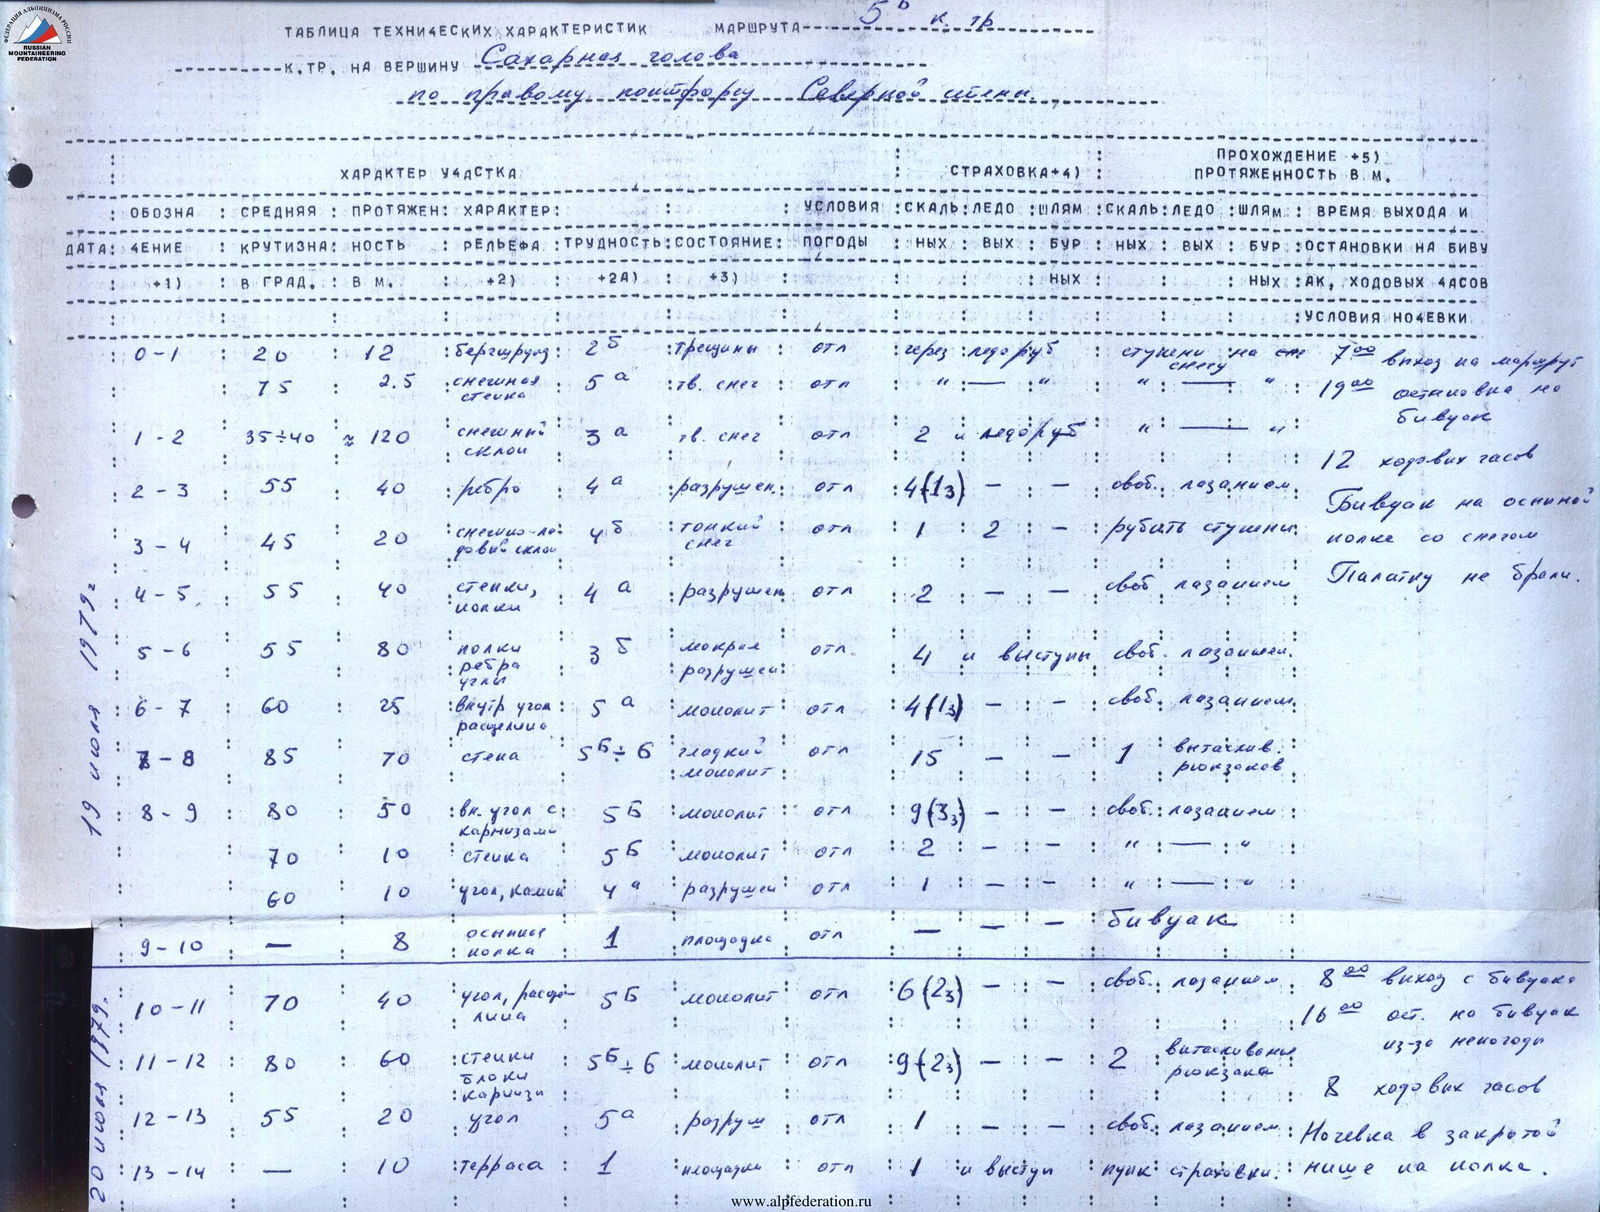 ФЕДЕРАЦИЯ АЛЬПИНИЗМА РОССИИ
RUSSIAN
MOUNTAINEERING
FEDERATION
ТАБЛИЦА ТЕХНИ4ЕСКИХ ХАРАКТЕРИСТИК МАРШРУТА 5Б к. тр
К.ТР. НА ВЕРШИНУ Сахарная голова
по правому контфорсу Северной стены.
ХАРАКТЕР У4АСТКА : СТРАХОВКА+4) : ПРОХОЖДЕНИЕ +5)
ПРОТЯЖЕННОСТЬ В М.
ОБОЗНА : СРЕДНЯЯ : ПРОТЯЖЕН: ХАРАКТЕР: : : УСЛОВИЯ :СКАЛЬ:ЛЕДО :ШЛЯМ :СКАЛЬ:ЛЕДО :ШЛЯМ : ВРЕМЯ ВЫХОДА И
ДАТА: 4ЕНИЕ : КРУТИЗНА: НОСТЬ : РЕЛЬЕФА :ТРУДНОСТЬ:СОСТОЯНИЕ: ПОГОДЫ : НЫХ : ВЫХ : БУР : НЫХ : ВЫХ : БУР :ОСТАНОВКИ НА БИВУ
+1) : В ГРАД. : В М. : +2) : +2А) : +3) : : : : НЫХ : : : НЫХ :АК, ХОДОВЫХ 4АСОВ
:УСЛОВИЯ НО4ЕВКИ
0-1 20 12 бергшрунд 2б трещины отл через ледоруб ступени на снегу 7 00 выход на маршрут
75 2.5 снежная стенка 5а тв. снег отл " — " " — " 19 00 остановка на
бивуак
1-2 35÷40 ≈120 снежный склон 3а тв. снег отл 2 и ледоруб " — "
12 ходовых часов
2-3 55 40 ребро 4а разрушен. отл 4(1з) – – своб. лазанием
Бивуак на осыпной
3-4 45 20 снежно-ледовый склон 4б тонкий снег отл 1 2 – рубить ступени
полке со снегом
Палатку не брали.
19 июля 1979г
4-5 55 40 стенки, полки 4а разрушен отл 2 – – своб лазанием
5-6 55 80 полки ребра углы 3б мокрая разрушен отл. 4 и выступы своб. лазанием.
6-7 60 25 внутр угол расщелина 5а монолит отл 4(1з) – – своб. лазанием.
7-8 85 70 стена 5Б÷6 гладкий монолит отл 15 – – 1 вытаскив. рюкзаков
8-9 80 50 вн. угол с карнизами 5Б монолит отл 9(3з) – – своб. лазанием
70 10 стенка 5Б монолит отл 2 – – " — "
60 10 угол, камин 4а разрушен отл 1 – – " — "
9-10 — 8 осыпная полка 1 площадка отл – – – бивуак
20 июля 1979г.
10-11 70 40 угол, расщелина 5Б монолит отл 6(2з) – – своб. лазанием 8 00 выход с бивуака
16 00 ост. на бивуак
из-за непогоды
11-12 80 60 стенки блоки карнизы 5Б÷6 монолит отл 9(2з) – – 2 вытаскивание рюкзака
8 ходовых часов
12-13 55 20 угол 5а разруш отл 1 – – своб. лазанием
Ночевка в закрытой
13-14 — 10 терраса 1 площадка отл 1 и выступ пунк страховки. нише на полке.
www.alpfederation.ru